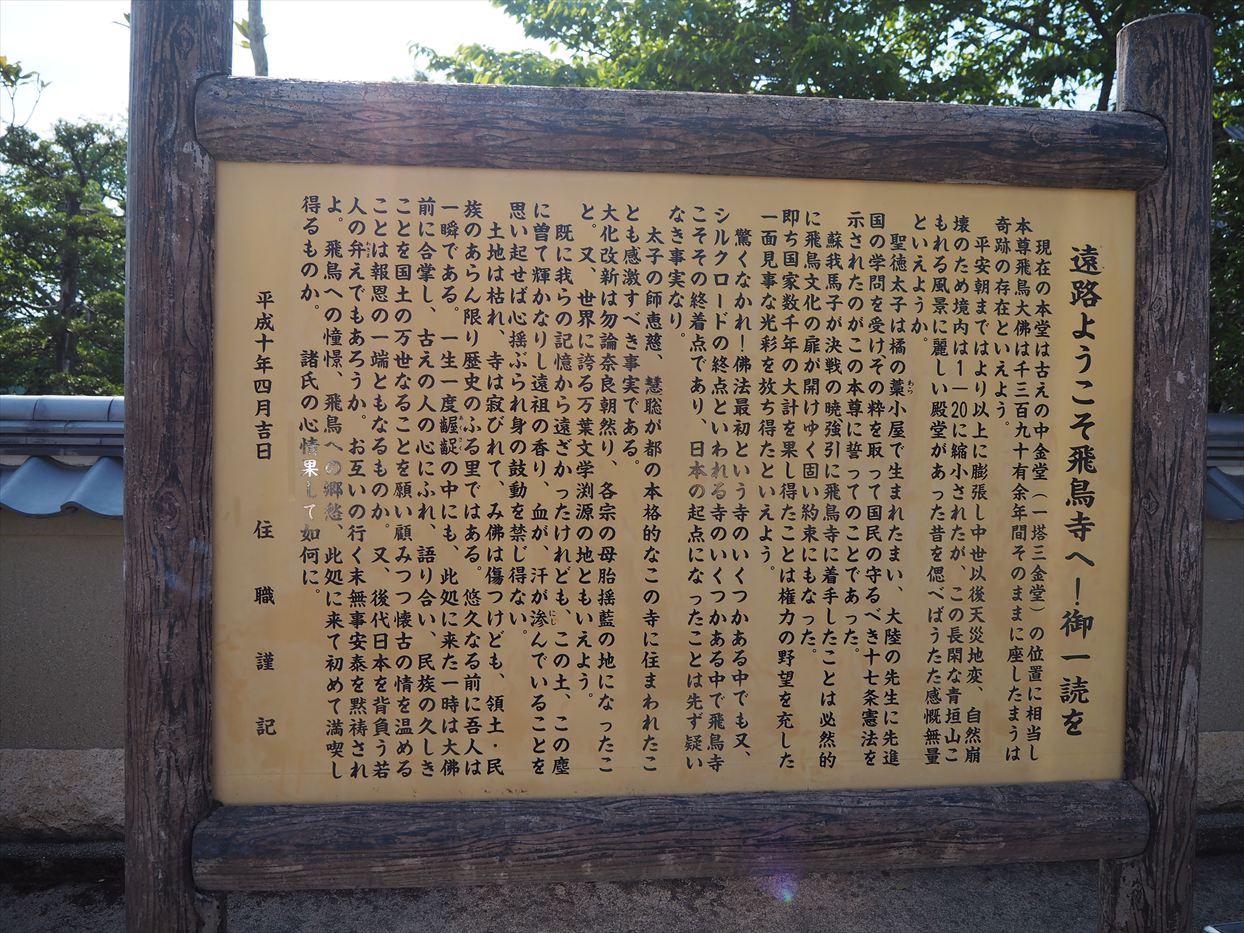 遠路ようこそ飛鳥寺へー御一読を
現在の本堂は古えの中金堂（一塔三金堂）の位置に相当し
本尊飛鳥大佛は千三百九十有余年間そのままに座したまうは
奇跡の存在といえよう。
平安朝まではより以上に膨張し中世以後天災地変、自然崩
壊のため境内は1―20に縮小されたが、この長閑な青垣山こ
もれる風景に麗しい殿堂があった昔を偲べばうたた感慨無量
といえようか。
聖徳太子は橘の藁小屋で生まれたまい、大陸の先生に先進
わら
国の学問を受けその粋を取って国民の守るべき十七条憲法を
示されたのがこの本尊に誓ってのことであった。
蘇我馬子が決戦の暁強引に飛鳥寺に着手したことは必然的
に飛鳥文化の扉が開けゆく固い約束にもなった。
即ち国家数千年の大計を果し得たことは権力の野望を充した
一面見事な光彩を放ち得たといえよう。
驚くなかれ！佛法最初という寺のいくつかある中でも又、
シルクロードの終点といわれる寺のいくつかある中で飛鳥寺
こそその終着点であり、日本の起点になったことは先ず疑い
なき事実なり。
太子の師恵慈、慧聡が都の本格的なこの寺に住まわれたこ
とも感激すべき事実である。
大化改新は勿論奈良朝然り、各宗の母胎揺藍の地になったこ
と。又、世界に誇る万葉文学渕源の地ともいえよう。
既に我らの記憶から遠ざかったけれども、この土、この塵
に曽て輝かなりし遠祖の香り、血が、汗が滲んでいることを
にじ
思い起せば心揺ぶられ身の鼓動を禁じ得ない。
土地は枯れ、寺は寂びれて、み佛は傷つけども、領土・民
族のあらん限り歴史のふる里ではある。悠久なる前に吾人は
一瞬である。一生一度齷齪の中にも、此処に来た一時は大佛
前に合掌し、古えの人の心にふれ、語り合い、民族の久しき
ことを国土の万世なることを願い顧みつつ懐古の情を温める
ことは報恩の一端ともなるものか。又、後代日本を背負う若
人の弁えでもあろうか。お互いの行く末無事安泰を黙祷され
よ。飛鳥への憧憬、飛鳥への郷愁、此処に来て初めて満喫し
得るものか。　諸氏の心情果して如何に。
平成十年四月吉日　住職謹記